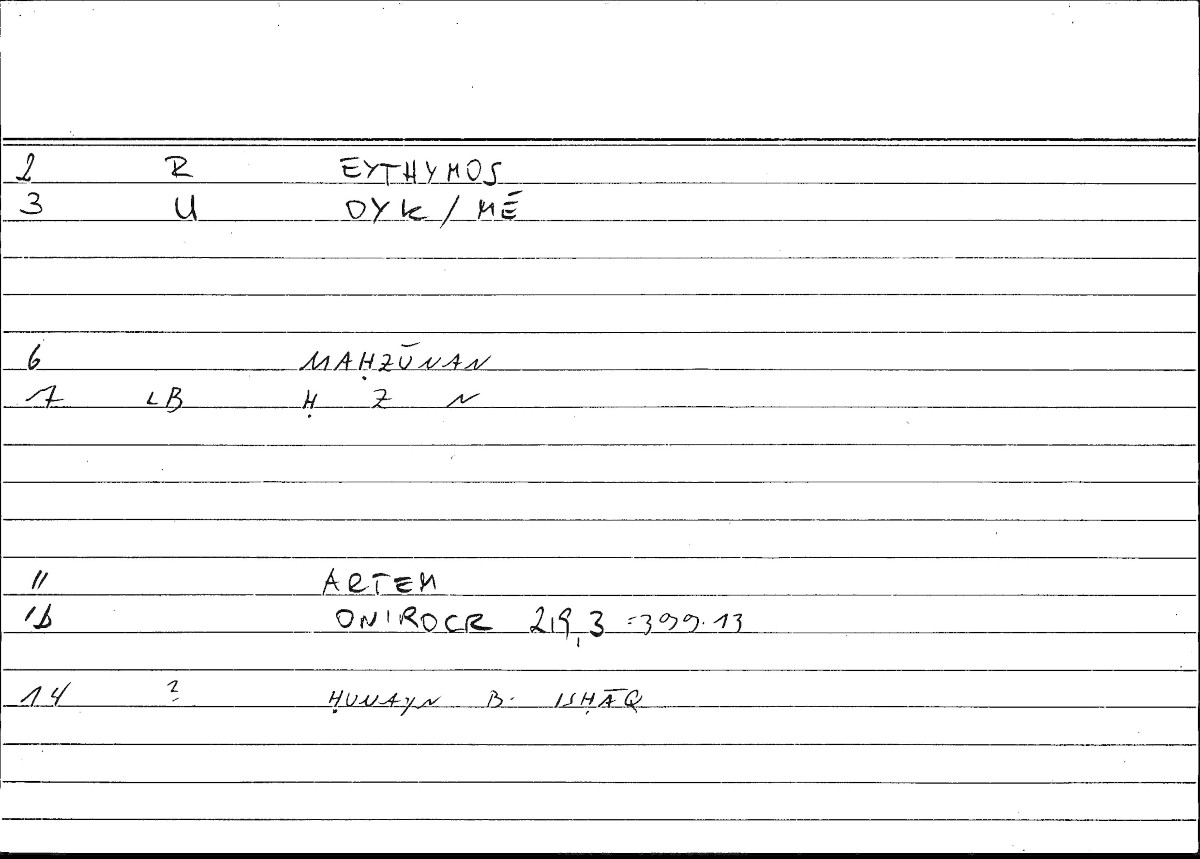 2 R EYTHYMOS
3 U OYK / MĒ
6 MAḤZŪNAN
7 LB Ḥ Z N
11 ARTEM
1b ONIROCR 219,3 =399.13
14 ? ḤUNAYN B. ISḤĀQ